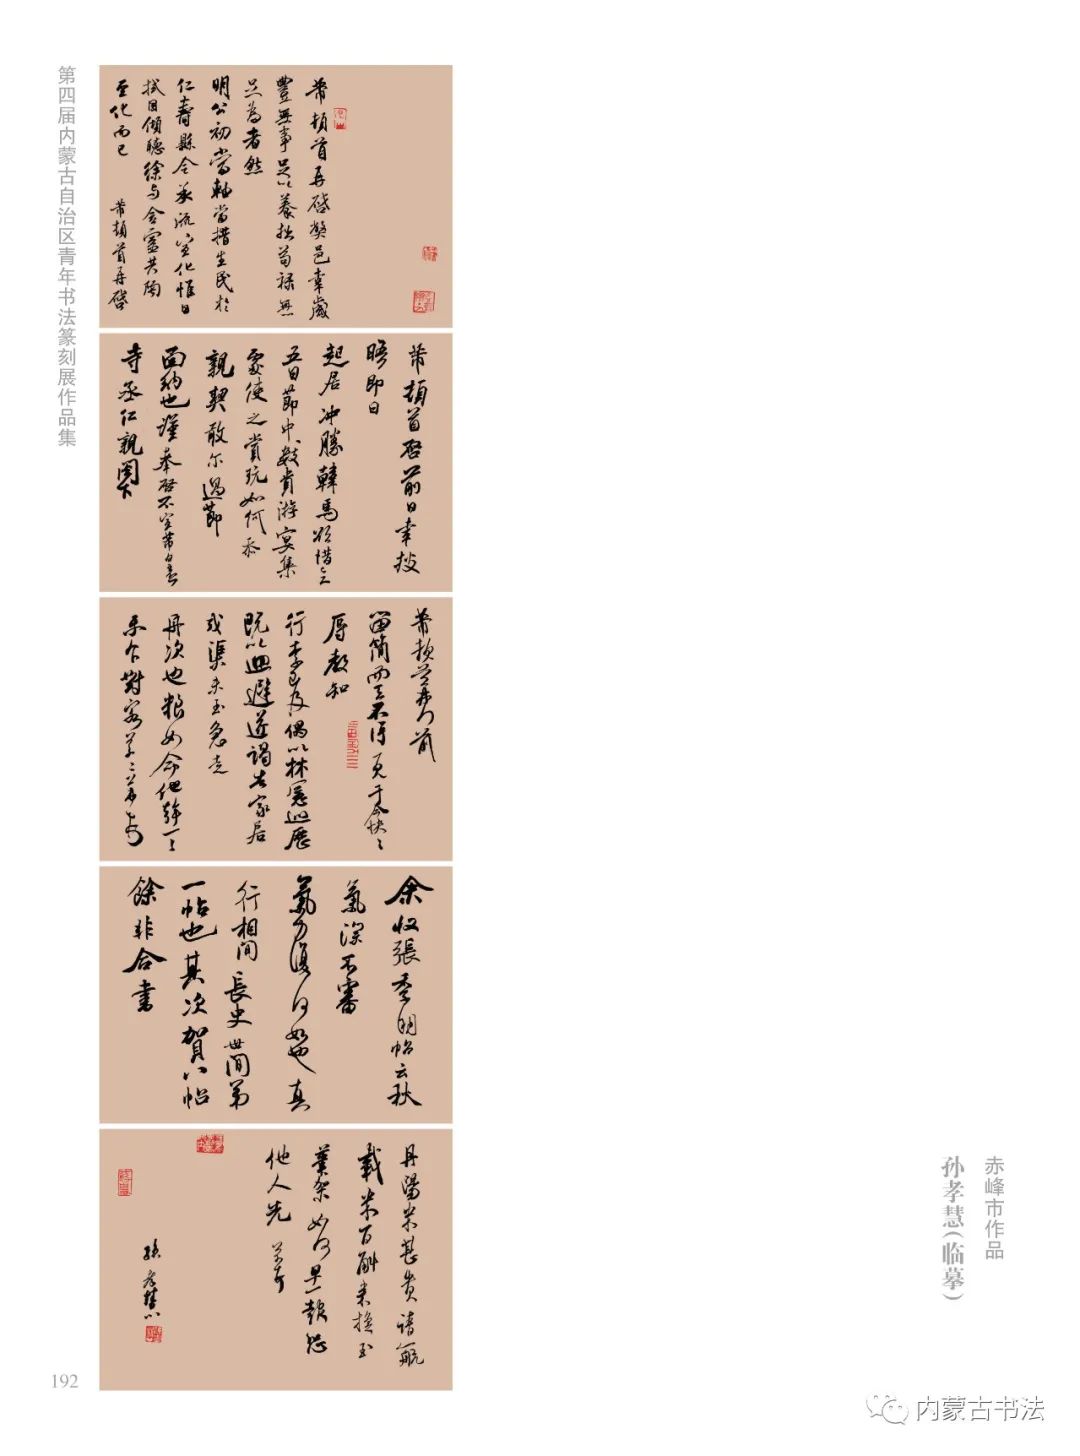 第四届内蒙古自治区青年书法篆刻展作品集
芾顿首再启弊邑幸岁
豐無事足以養拙苟禄無
足為者然
明公初當軸當措生民於
仁壽縣令承流宣化惟日
拭目傾聽徐与含靈共陶
至化而已
芾頓首再啓
芾頓首启前日幸披
晤即日
起居冲勝韓馬欲借三
五日節中數貴游宴集
處使之賞玩如何忝
親契敢尔過節
面納也謹奉启不宣芾白
寺丞仁親閣下
芾頓首
留簡而去不得一見于今怏怏
辱教知
行李已及偶以林憲巡歷
既以迴避遂謁告家居
或渠未至急走
舟次也粮如命他幹一一
示下對客草草芾
余收張季明帖云秋
氣深不審
氣力復何如也真
行相間長史世間第
一帖也其次賀八帖
餘非合書
丹陽米甚貴請一航
載米百斛来換玉
筆架如何早一報恐
他人先
芾頓首
孫孝慧
赤峰市作品
孙孝慧（临摹）
192
内蒙古书法